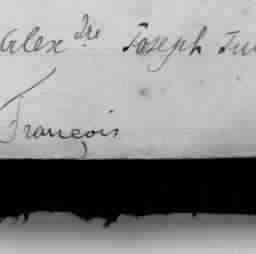 Alex dre Joseph
François